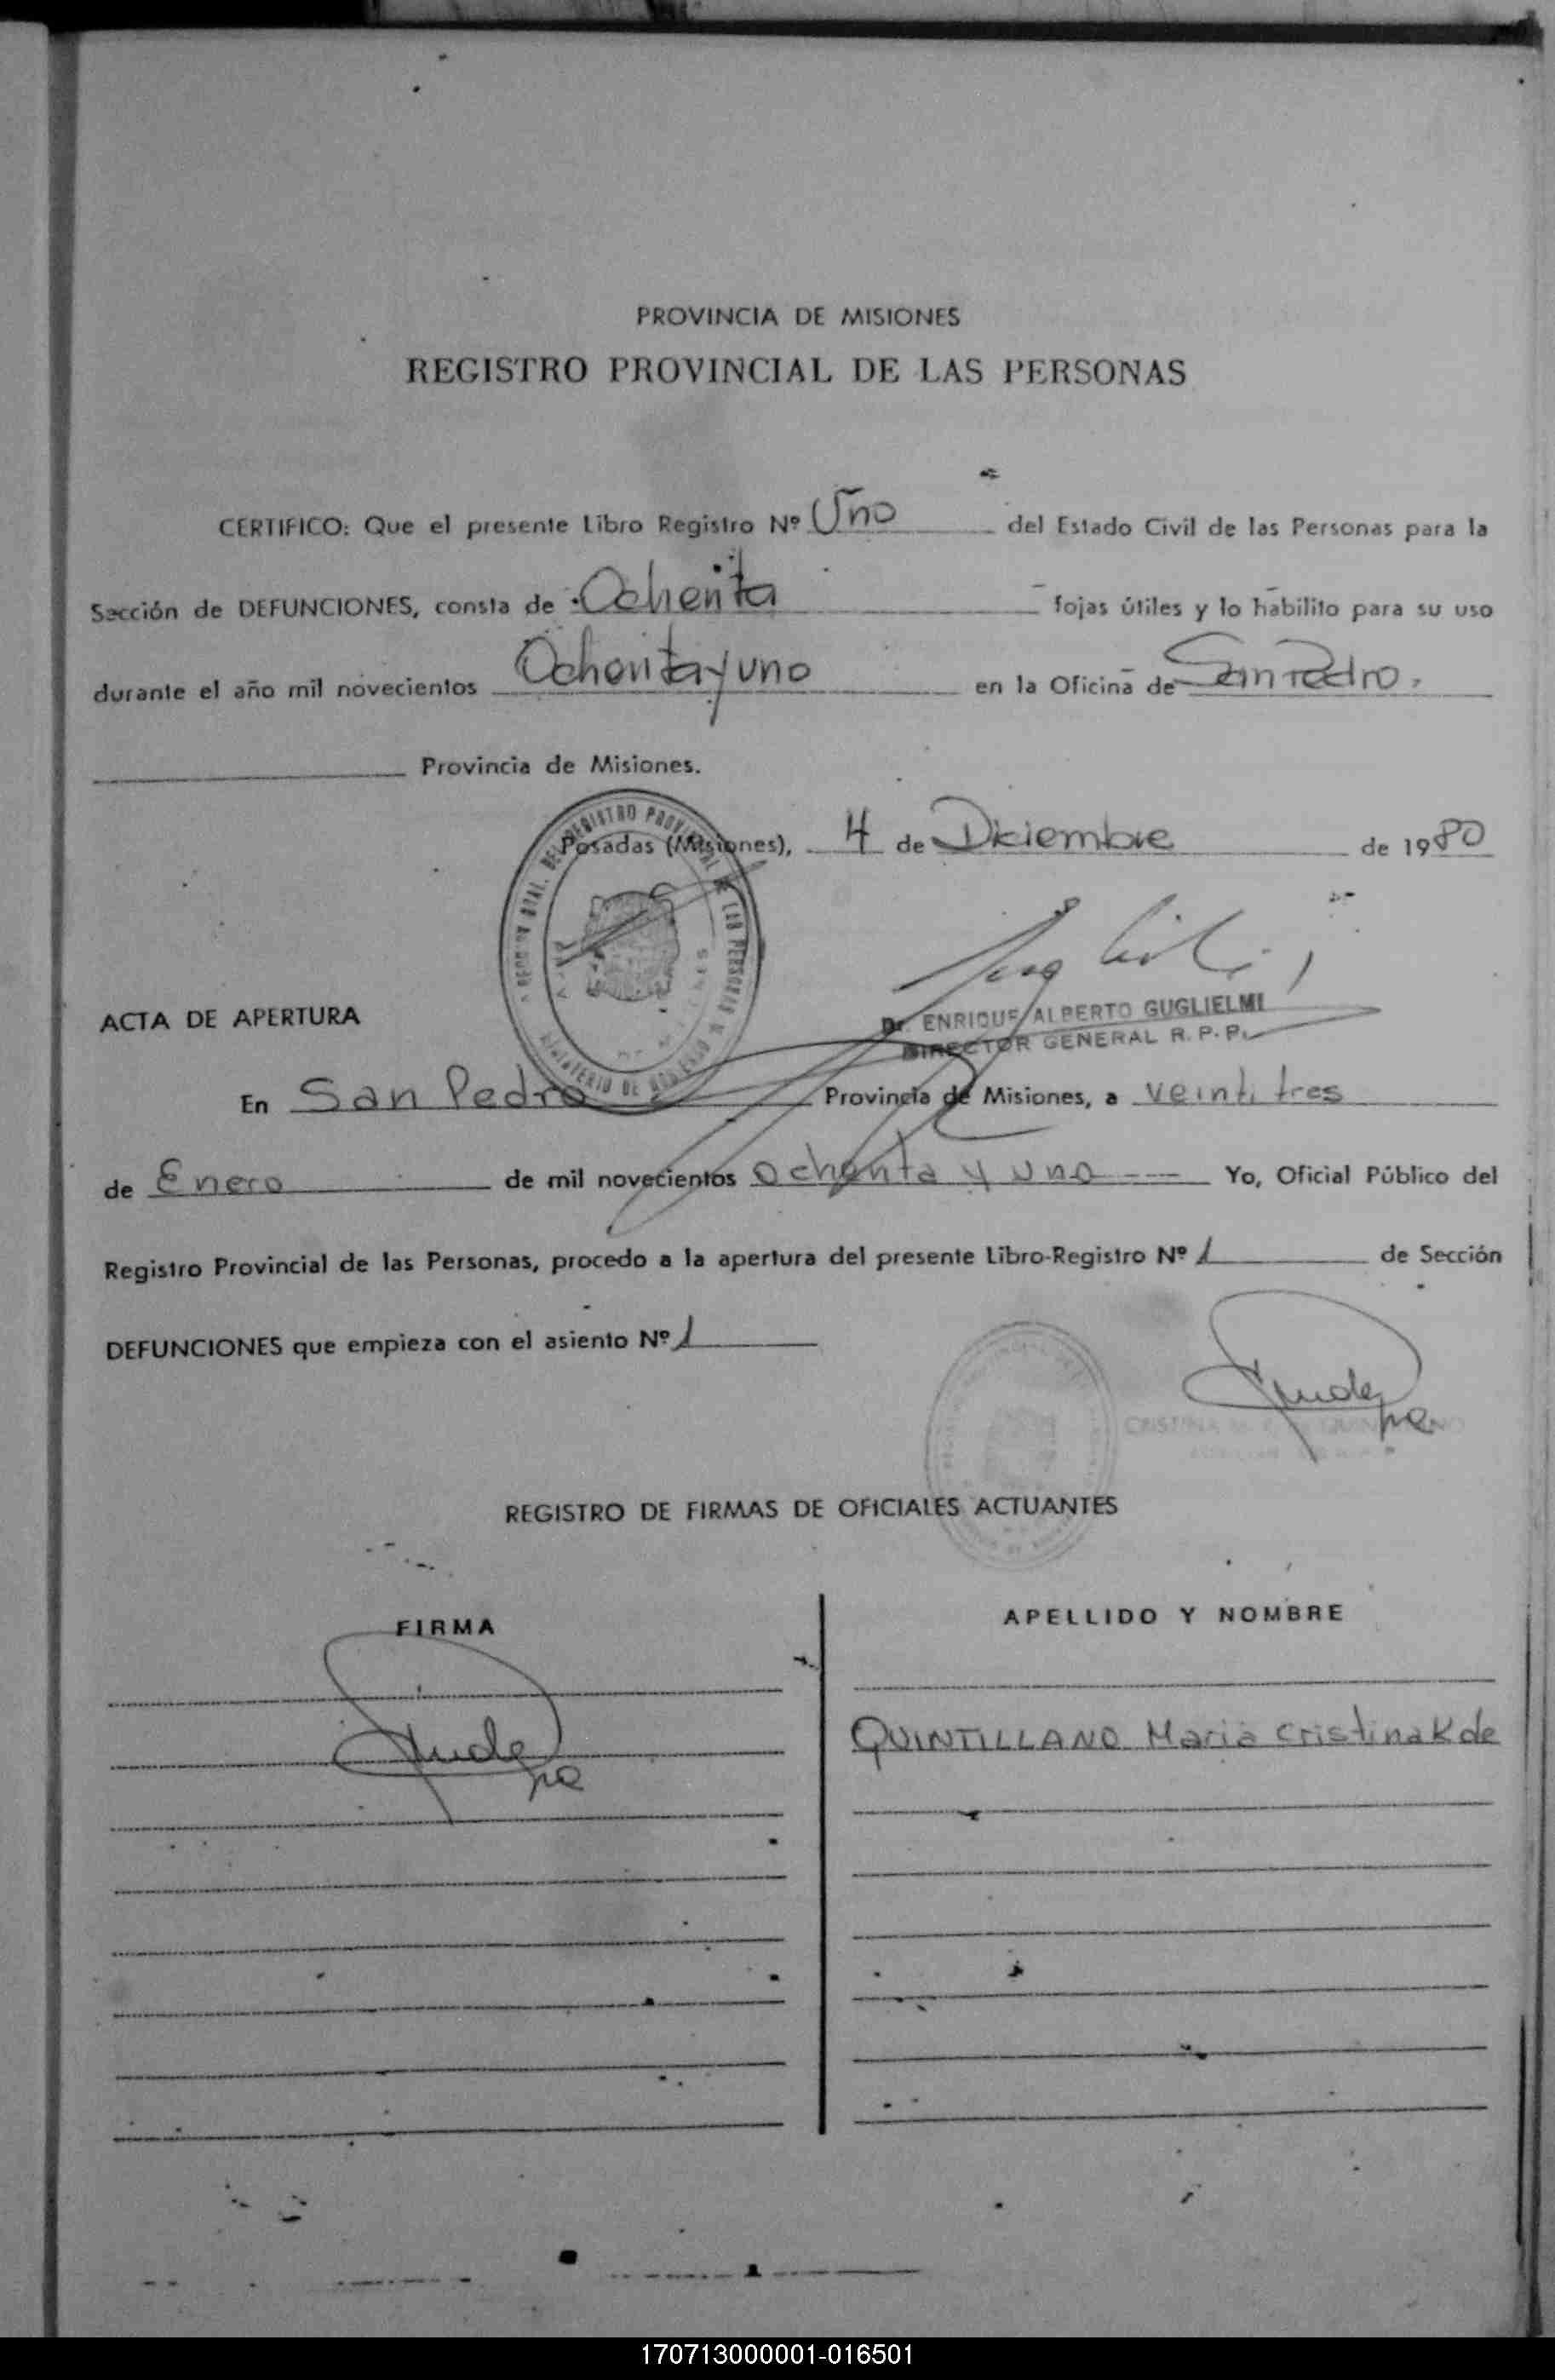 PROVINCIA DE MISIONES
REGISTRO PROVINCIAL DE LAS PERSONAS
CERTIFICO: Que el presente Libro Registro Nº Uno del Estado Civil de las Personas para la
Sección de DEFUNCIONES, consta de Ochenta fojas útiles y lo habilito para su uso
durante el año mil novecientos Ochenta y uno en la Oficina de San Pedro.
Provincia de Misiones.
REGISTRO PROVINCIAL DE LAS PERSONAS
Posadas (Misiones), 4 de Diciembre de 1980
Dr. ENRIQUE ALBERTO GUGLIELMI
DIRECTOR GENERAL R. P. P.
ACTA DE APERTURA
En San Pedro Provincia de Misiones, a veintitres
de Enero de mil novecientos ochenta y uno --- Yo, Oficial Público del
Registro Provincial de las Personas, procedo a la apertura del presente Libro-Registro Nº 1 de Sección
DEFUNCIONES que empieza con el asiento Nº 1
CRISTINA
REGISTRO DE FIRMAS DE OFICIALES ACTUANTES
FIRMA APELLIDO Y NOMBRE
QUINTILLANO Maria Cristina K de
170713000001-016501